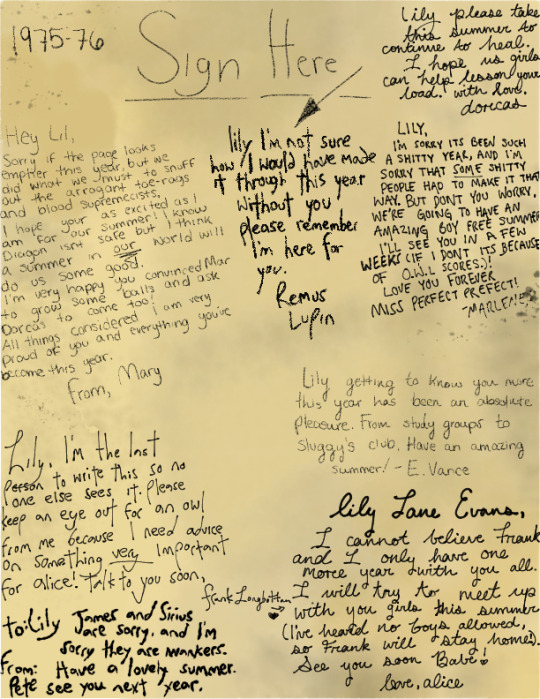 1975-76
Sign Here
Lily please take
this summer to
continue to heal.
I hope us girls
can help lesson your
load. with love.
dorcas
Hey Lil,
Sorry if the page looks
emptier this year, but we
did what we must to snuff
out the arrogant toe-rags
and blood supremecists.
I hope your as excited as I
am for our summer! I know
Diagon isnt safe but I think
a summer in our world will
do us some good.
I'm very happy you convinced Mar
to grow some balls and ask
Dorcas to come too!
All things considered I am very
proud of you and everything you've
become this year.
from, Mary
lily I'm not sure
how I would have made
it through this year
without you
please remember
I'm here for
you.
Remus
Lupin
LILY,
I'M SORRY ITS BEEN SUCH
A SHITTY YEAR, AND I'M
SORRY THAT SOME SHITTY
PEOPLE HAD TO MAKE IT THAT
WAY. BUT DONT YOU WORRY,
WE'RE GOING TO HAVE AN
AMAZING BOY FREE SUMMER
I'LL SEE YOU IN A FEW
WEEKS (IF I DONT ITS BECAUSE
OF O.W.L SCORES.)!
LOVE YOU FOREVER
MISS PERFECT PREFECT!
-MARLENE
Lily getting to know you more
this year has been an absolute
pleasure. From study groups to
Sluggy's club. Have an amazing
summer! - E. Vance
Lily, I'm the last
person to write this so no
one else sees it. Please
keep an eye out for an owl
from me because I need advice
on something very important
for alice! Talk to you soon,
frank Longbottom
lily Jane Evans,
I cannot believe Frank
and I only have one
more year with you all.
I will try to meet up
with you girls this summer
(I've heard no boys allowed,
so Frank will stay home).
See you soon Babe!
love, alice
to: Lily James and Sirius
are sorry. and I'm
sorry they are wankers.
From: Have a lovely summer.
Pete see you next year.